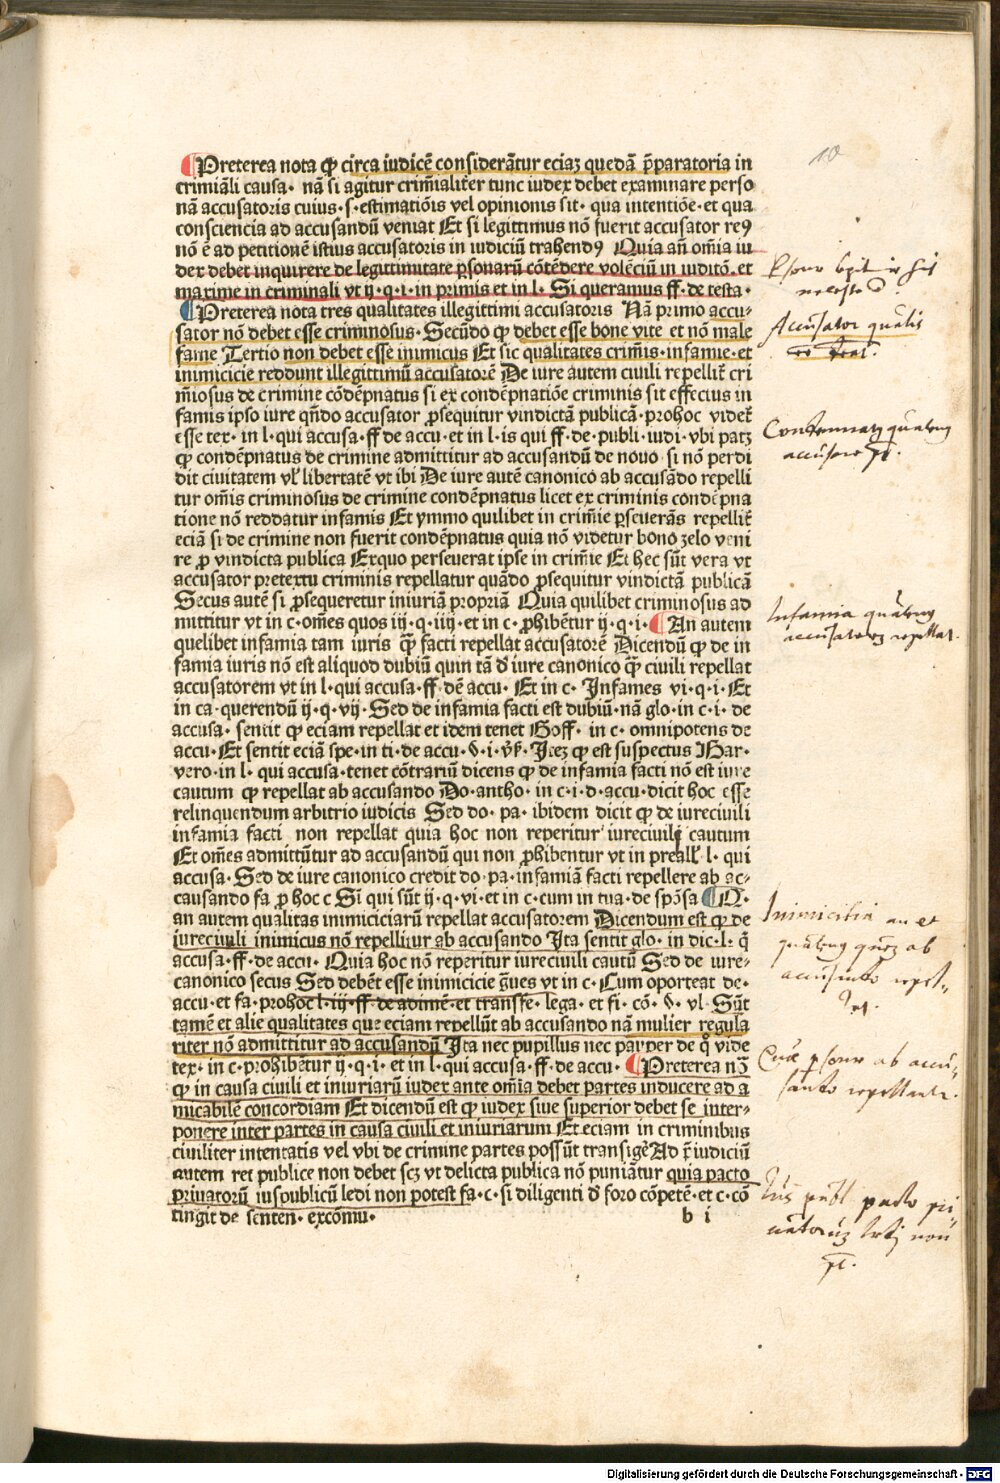 10
¶Preterea nota ꝙ circa iudicē considerātur eciaz quedā p̄paratoria in
crimiāli causa· nā si agitur crim̄ialit̄er tunc iudex debet examinare perso
nā accusatoris cuius·s·estimatiōis vel opinionis sit· qua intentiōe·et qua
consciencia ad accusandū veniat Et si legittimus nō fuerit accusator reꝯ
nō ē ad petitionē istius accusatoris in iudiciū trahendꝯ Quia añ om̄ia iu
dex debet inquirere de legittimitate ꝑsonarū cōtēdere volēciū in iuditō·et
maxime in criminali vt ij·q·i·in primis et in l· Si queramus ff·de testa·
¶Preterea nota tres qualitates illegittimi accusatoris Nā primo accu-
sator nō debet esse criminosus· Secūdo ꝙ debet esse bone vite et nō male
fame Tertio non debet esse inimicus Et sic qualitates crim̄is·infamie·et
inimicicie reddunt illegittimū accusatorē De iure autem ciuili repellit̄ cri
m̄iosus de crimine cōdēpnatus si ex condēpnatiōe criminis sit effectus in
famis ipso iure qn̄do accusator ꝓsequitur vindictā publicā·prohoc videt̄
esse tex· in l·qui accusa·ff de accu·et in l·is qui ff·de·publi·iudi·vbi patꝫ
ꝙ condēpnatus de crimine admittitur ad accusandū de nouo·si nō perdi
dit ciuitatem vl̓ libertatē vt ibi De iure autē canonico ab accusādo repelli
tur om̄is criminosus de crimine condēpnatus licet ex criminis condēpna
tione nō reddatur infamis Et ymmo quilibet in crim̄ie ꝑseuerās repellit̄
eciā si de crimine non fuerit condēpnatus quia nō videtur bono zelo veni
re ꝓ vindicta publica Exquo perseuerat ipse in crim̄ie Et hec sūt vera vt
accusator pretextu criminis repellatur quādo ꝓsequitur vindictā publicā
Secus autē si ꝓsequeretur iniuriā propriā Quia quilibet criminosus ad
mittitur vt in c·om̄es quos iij·q·iiij·et in c·ꝓhibētur ij·q·i· ¶An autem
quelibet infamia tam iuris q̄ꝫ facti repellat accusatorē Dicendū ꝙ de in
famia iuris nō est aliquod dubiū quin tā d̄ iure canonico q̄ꝫ ciuili repellat
accusatorem vt in l·qui accusa·ff·dē accu· Et in c· Infames vi·q·i·Et
in ca·querendū ij·q·vij·Sed de infamia facti est dubiū·nā glo·in c·i·de
accusa· sentit ꝙ eciam repellat et idem tenet Goff· in c· omnipotens de
accu·Et sentit eciā spe·in ti·de accu·§·i·v̄s̄· Itez ꝙ est suspectus Bar·
vero·in l· qui accusa·tenet cōtrariū dicens ꝙ de infamia facti nō est iure
cautum ꝙ repellat ab accusando Do·antho· in c·i·d·accu·dicit hoc esse
relinquendum arbitrio iudicis Sed do· pa· ibidem dicit ꝙ de iureciuili
infamia facti non repellat quia hoc non reperitur iureciuili cautum
Et om̄es admittūtur ad accusandū qui non ꝓhibentur vt in preall̓· l· qui
accusa·Sed de iure canonico credit do·pa·infamiā facti repellere ab ac-
causando fa·ꝓ hoc c Si qui sūt ij·q·vi·et in c·cum in tua·de spōsa ¶Q·
an autem qualitas inimiciciarū repellat accusatorem Dicendum est ꝙ de
iureciuili inimicus nō repellitur ab accusando Ita sentit glo· in dic·l· q̄
accusa·ff·de accu· Quia hoc nō reperitur iureciuili cautū Sed de iure-
canonico secus Sed debēt esse inimicicie ḡues vt in c·Cum oporteat de·
accu·et fa·prohoc l·iij·ff·de adimē·et transfe·lega·et fi·cō·§·vl· Sūt
tamē et alie qualitates que eciam repellūt ab accusando nā mulier regula
riter nō admittitur ad accusandū Ita nec pupillus nec pauper de q̊ vide
tex· in c·prohibētur ij·q·i·et in l·qui accusa·ff·de accu· ¶Preterea nō
ꝙ in causa ciuili et iniuriarū iudex ante om̄ia debet partes inducere ad a
micabilē concordiam Et dicendū est ꝙ iudex siue superior debet se inter-
ponere inter partes in causa ciuili et iniuriarum Et eciam in criminibus
ciuiliter intentatis vel vbi de crimine partes possūt transigē Ad r̄ iudiciū
autem rei publice non debet scꝫ vt delicta publica nō puniātur quia pacto
priuatorū iuspublicū ledi non potest fa·c·si diligenti d̄ foro cōpetē·et c·cō
tingit de senten·excōmu·
b i
Accusator qualis
Infamia
Inimicitia an et
Digitalisierung gefördert durch die Deutsche Forschungsgemeinschaft · DFG